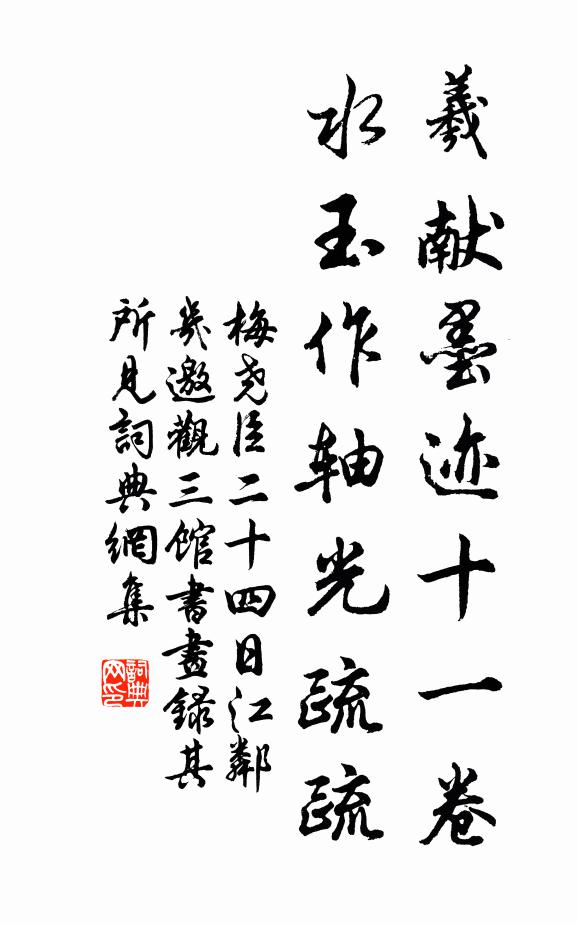 羲献墨迹十一卷
水玉作轴光疏疏
梅尧臣二十四日江鄰
幾邀觀三馆書畫録其
所見詞典網集
詞典网印